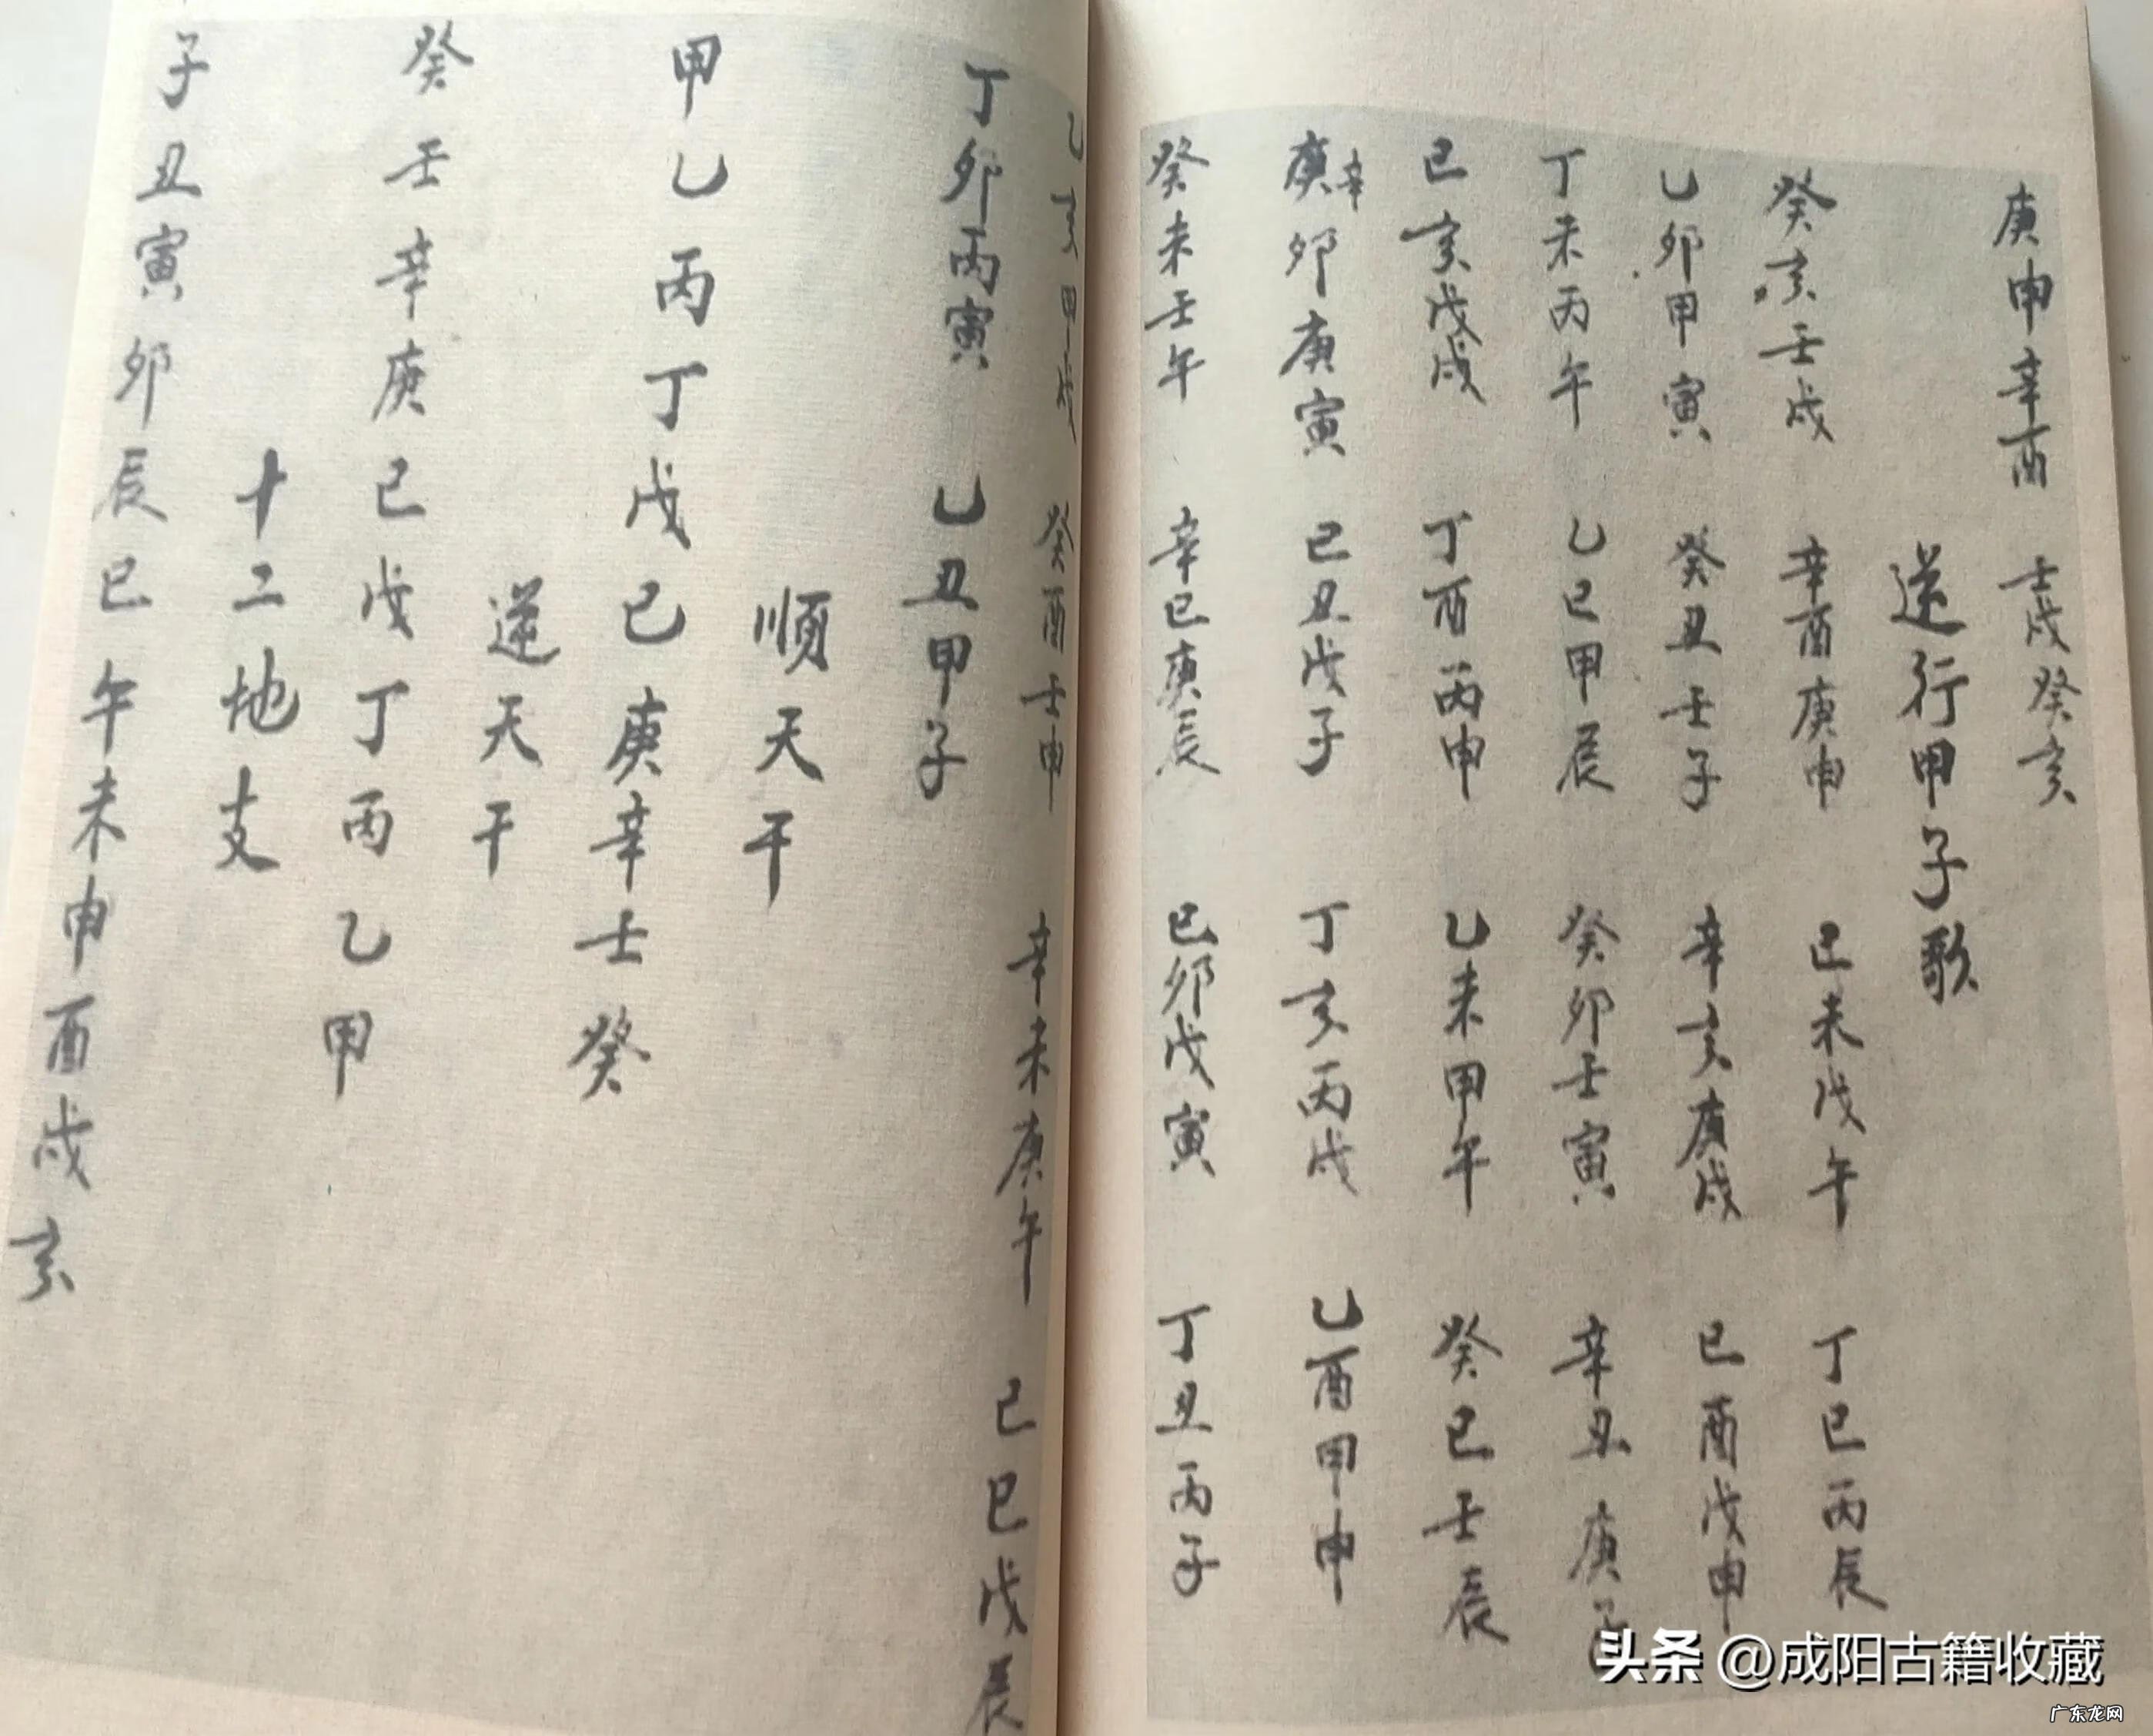 庚申辛酉 壬戌癸亥
逆行甲子歌
癸亥壬戌 辛酉庚申 己未戊午 丁巳丙辰
乙卯甲寅 癸丑壬子 辛亥庚戌 己酉戊申
丁未丙午 乙巳甲辰 癸卯壬寅 辛丑庚
己亥戊戌 丁酉丙申 乙未甲午 癸巳壬辰
庚辛卯庚寅 己丑戊子 丁亥丙戌 乙酉甲申
癸未壬午 辛巳庚辰 己卯戊寅 丁丑丙子
乙亥甲戌 癸酉壬申 辛未庚午 己巳戊辰
丁卯丙寅 乙丑甲子
順天干
甲乙丙丁戊己庚辛壬癸
逆天干
癸壬辛庚己戊丁丙乙甲
十二地支
子丑寅卯辰巳午未申酉戌亥
头条 @成阳古籍收藏
广东龙网